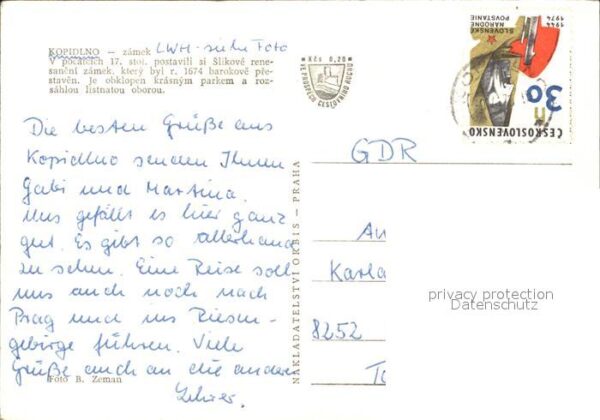 KOPIDLNO — zámek LWH - siehe Foto
V počátcích 17. stol. postavili si Šlikové rene-
sanční zámek, který byl r. 1674 barokově pře-
stavěn. Je obklopen krásným parkem a roz-
sáhlou listnatou oborou.
Kčs 0,20
VE PROSPĚCH CESTOVNÍHO RUCHU
SLOVENSKÉ
NÁRODNÉ
POVSTANIE
1944
1974
30 h
ČESKOSLOVENSKO
Die besten Grüße aus
Kopidlno senden Ihnen
Gabi und Martina.
Uns gefällt es hier ganz
gut. Es gibt so allerhand
zu sehen. Eine Reise soll
uns auch noch nach
Prag und ins Riesen-
gebirge führen. Viele
Grüße auch an die anderen
Lehrer.
Foto B. Zeman
NAKLADATELSTVÍ ORBIS - PRAHA
GDR
An
Karla
8252
privacy protection
Datenschutz